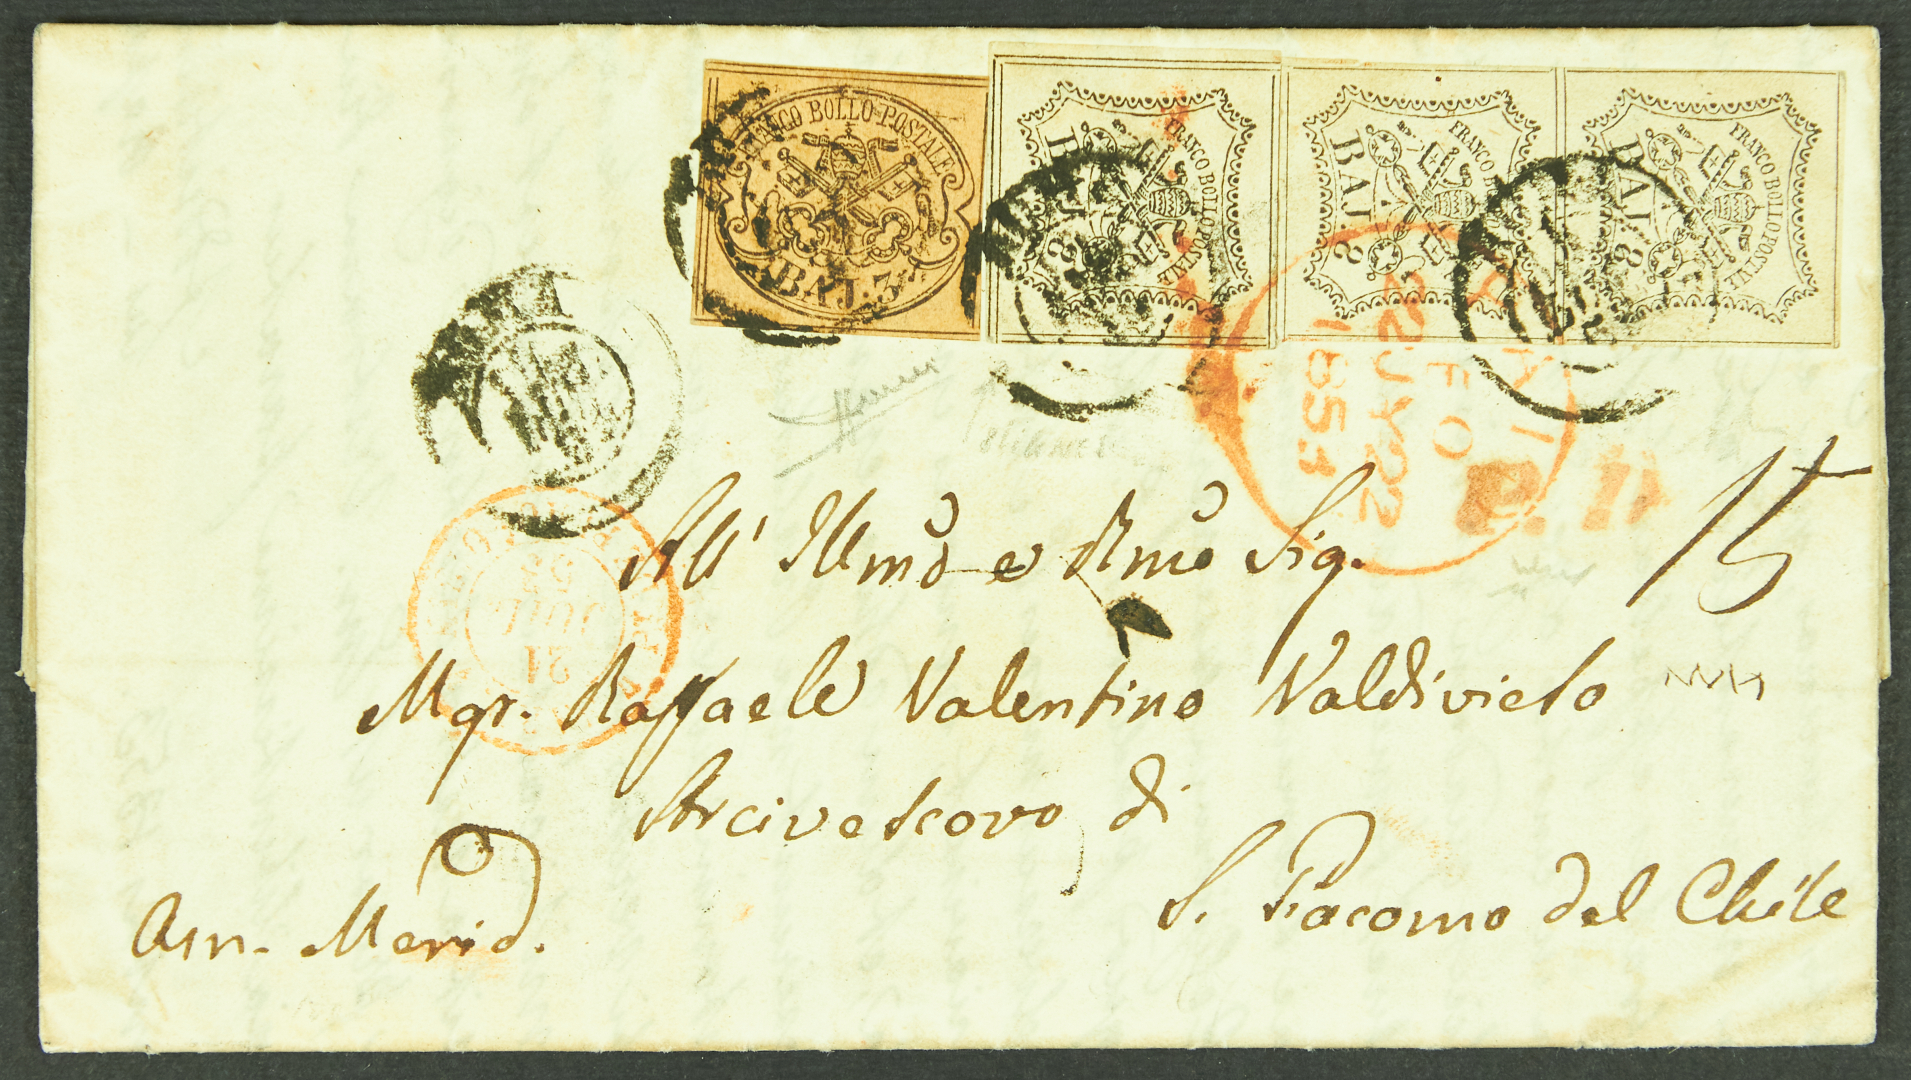 FRANCO BOLLO POSTALE
BAJ. 3
FRANCO BOLLO POSTALE
BAJ. 8
FRANCO
BAJ. 8
FRANCO BOLLO POSTALE
BAJ. 8
PAID
FO
2 JY 22
1853
P.
15
21
53
All' Illmo e Rmo Sig.
Mgr. Raffaele Valentino Valdivieso
Arcivescovo di
S. Giacomo del Chile
Am. Merid.